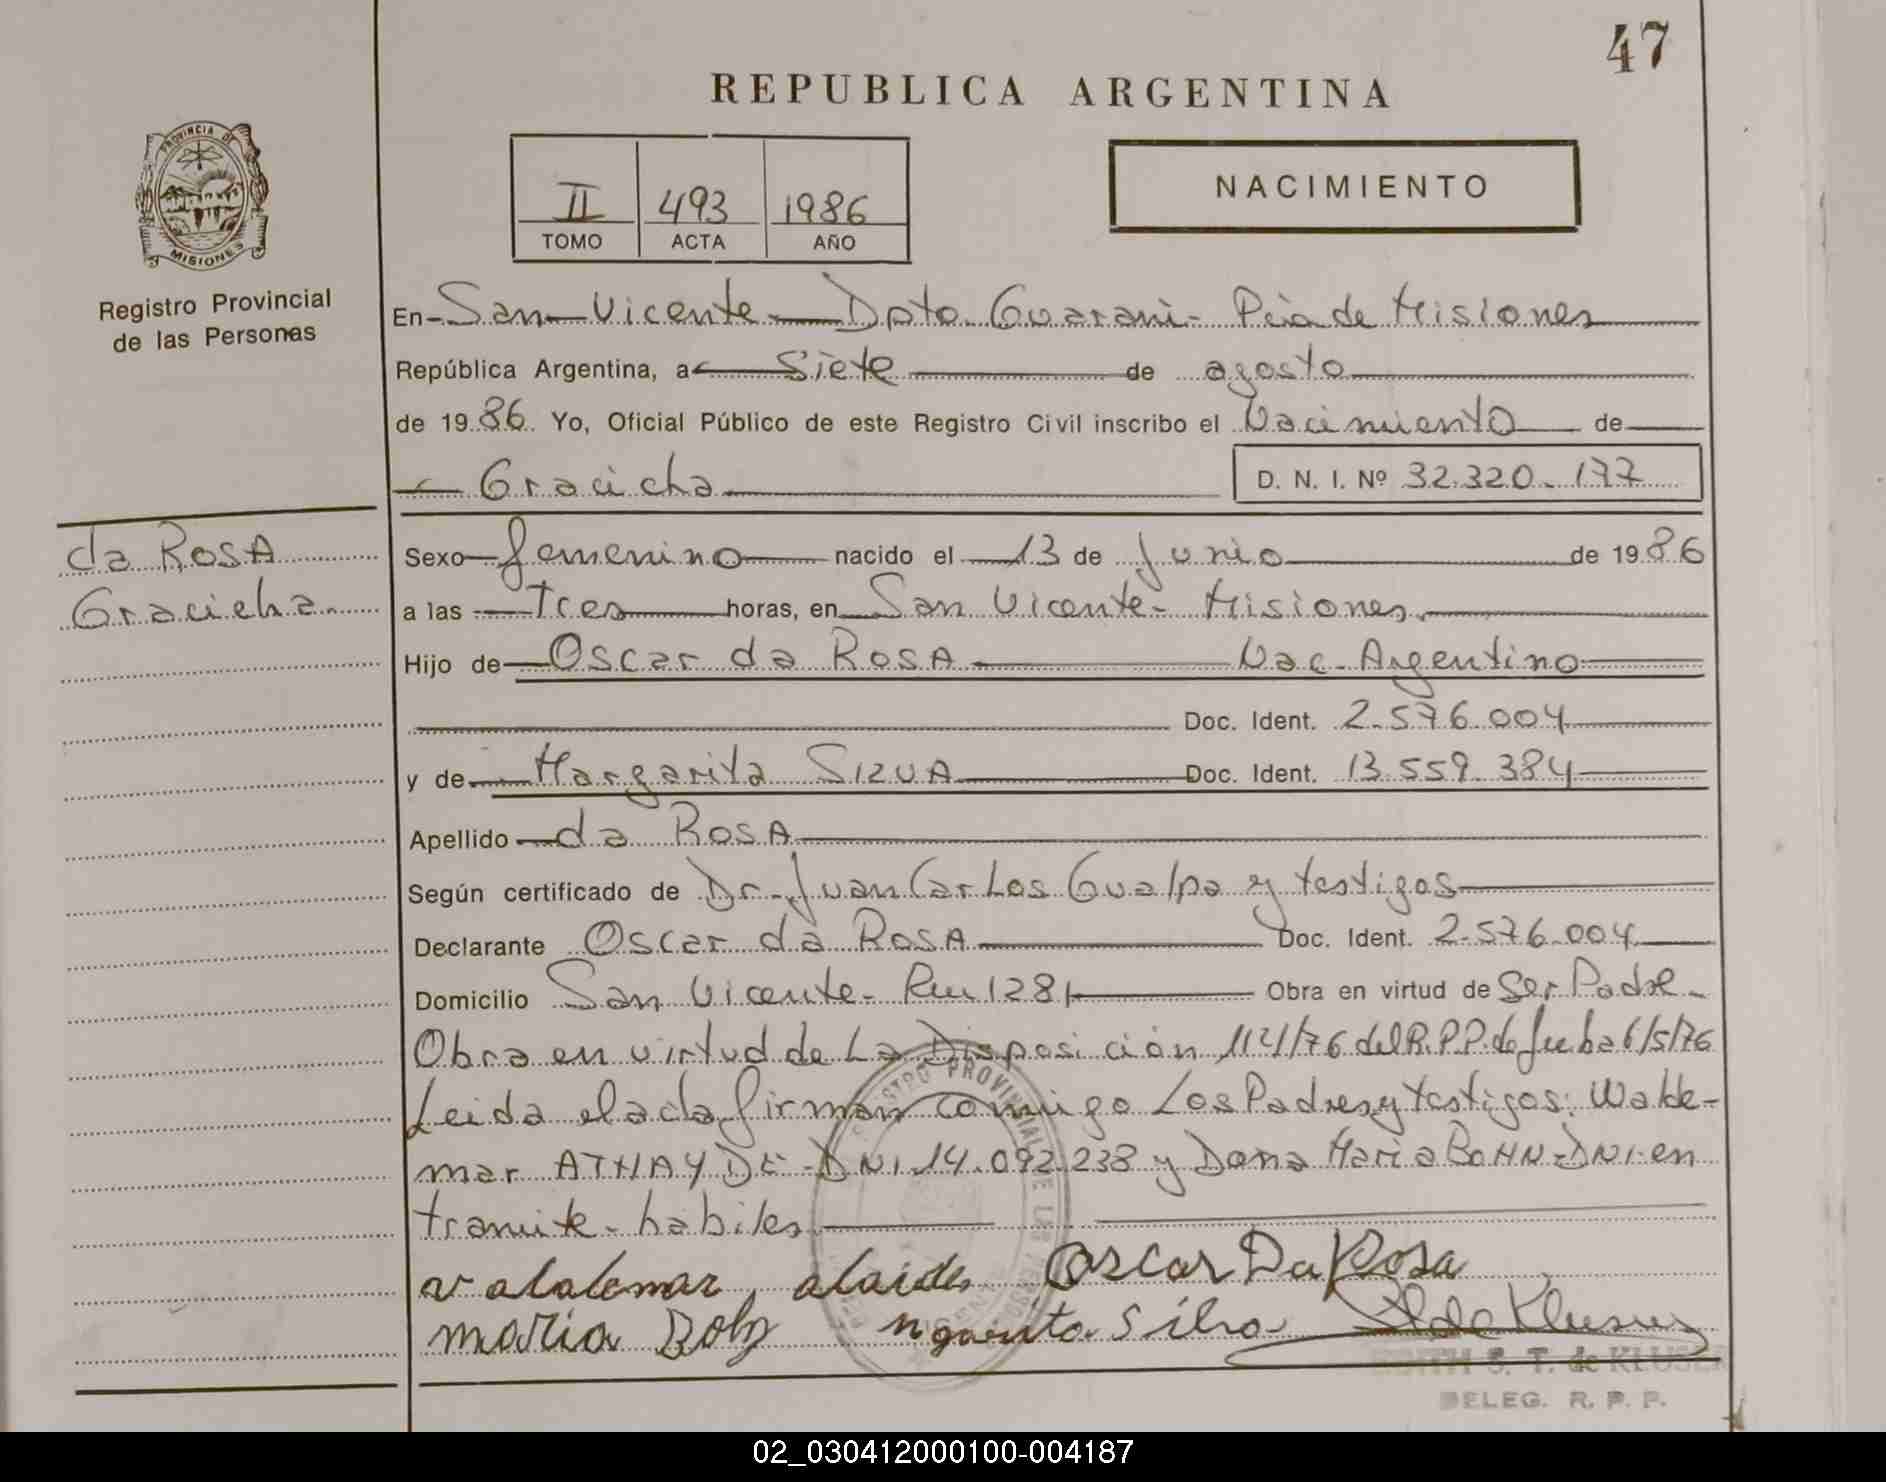 47
REPUBLICA ARGENTINA
PROVINCIA DE
MISIONES
Registro Provincial
de las Personas
II 493 1986
TOMO ACTA AÑO
NACIMIENTO
En San Vicente Dpto. Guarani - Pcia de Misiones
República Argentina, a Siete de agosto
de 1986 Yo, Oficial Público de este Registro Civil inscribo el Nacimiento de
Graciela
D. N. I. Nº 32.320.177
da ROSA
Graciela
Sexo femenino nacido el 13 de Junio de 1986
a las Tres horas, en San Vicente - Misiones
Hijo de Oscar da ROSA Nac. Argentino
Doc. Ident. 2.576.004
y de Margarita SILVA Doc. Ident. 13.559.384
Apellido da ROSA
Según certificado de Dr. Juan Carlos Gualpa y testigos
Declarante Oscar da ROSA Doc. Ident. 2.576.004
Domicilio San Vicente - Km 1281 Obra en virtud de Ser Padre -
Obra en virtud de La Disposición 1121/76 del R.P.P. de fecha 6/5/76
Leida el acta firman conmigo Los Padres y testigos: Walde-
mar ATHAYDE - DNI 14.092.238 y Dona Maria BOHN - DNI en
tramite - habiles
valdemar Oscar Da Rosa
maria Silva
EDITH S. T. de KLUSER
DELEG. R. P. P.
02_030412000100-004187